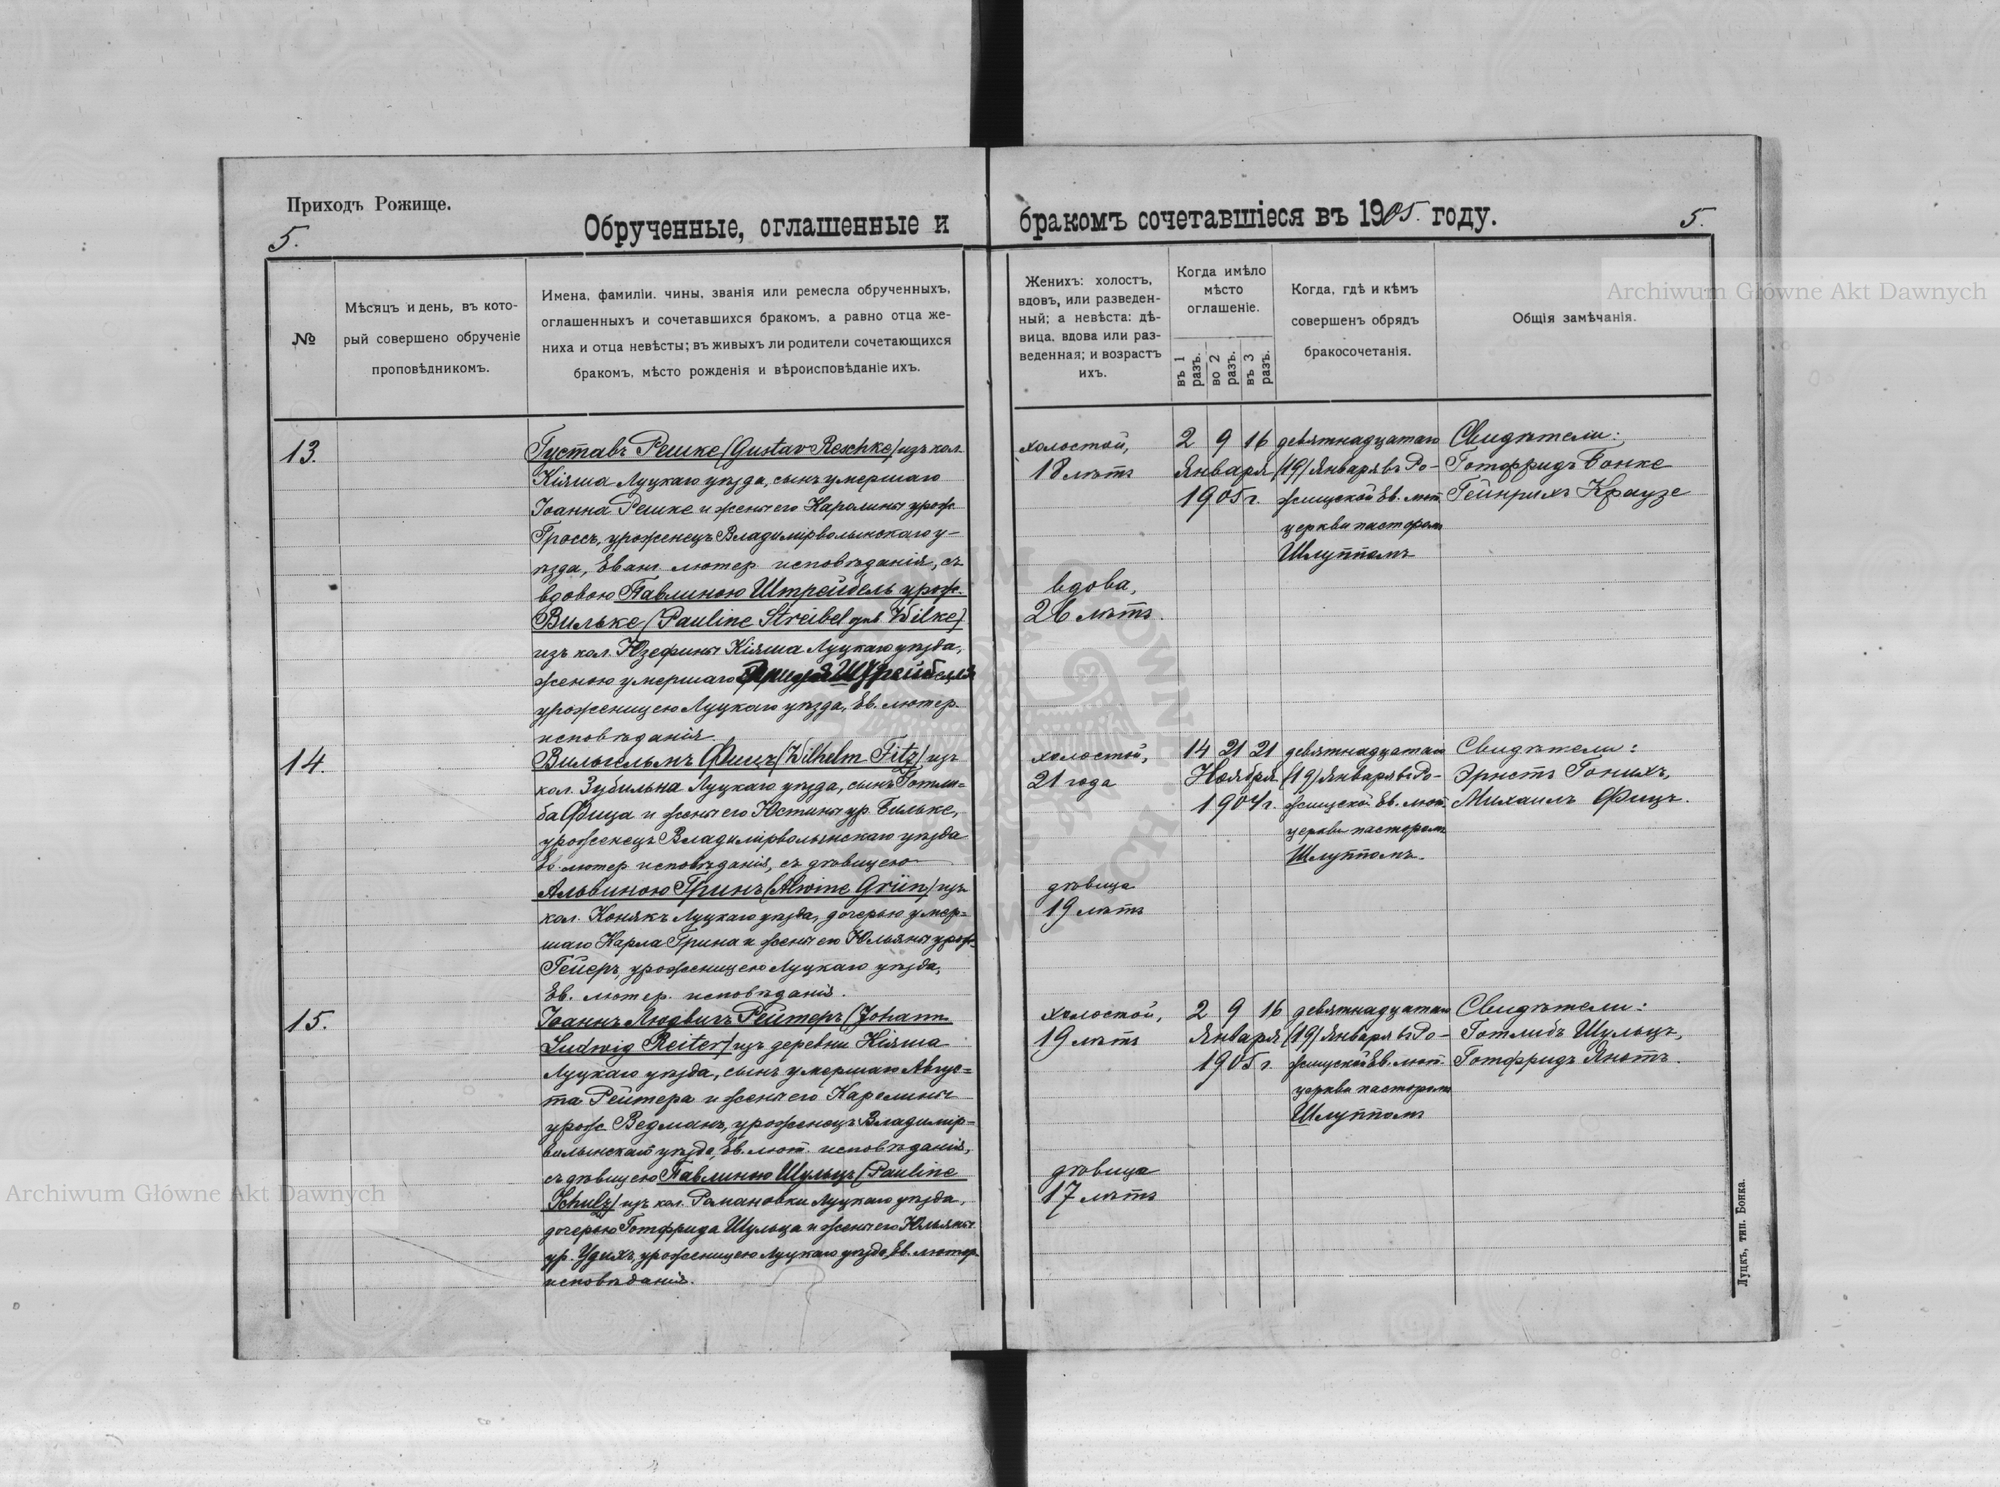 Приходъ Рожище.
5.
Обрученные, оглашенные и
бракомъ сочетавшіеся въ 1905. году.
5.
№
Мѣсяцъ и день, въ кото-
рый совершено обрученіе
проповѣдникомъ.
Имена, фамиліи, чины, званія или ремесла обрученныхъ,
оглашенныхъ и сочетавшихся бракомъ, а равно отца же-
ниха и отца невѣсты; въ живыхъ ли родители сочетающихся
бракомъ, мѣсто рожденія и вѣроисповѣданіе ихъ.
Женихъ: холостъ,
вдовъ, или разведен-
ный; а невѣста: дѣ-
вица, вдова или раз-
веденная; и возрастъ
ихъ.
Когда имѣло
мѣсто
оглашеніе.
въ 1 разъ.
во 2 разъ.
въ 3 разъ.
Когда, гдѣ и кѣмъ
совершенъ обрядъ
бракосочетанія.
Общія замѣчанія.
13.
Густавъ Решке (Gustav Reschke) изъ кол.
Кіяша Луцкаго уѣзда, сынъ умершаго
Іоанна Решке и жены его Каролины урож.
Гроссъ, уроженецъ Владимірволынскаго у-
ѣзда, Еванг. лютер. исповѣданія, съ
вдовою Павлиною Штрейбель урож.
Вильке (Pauline Streibel Wilke)
изъ кол. Юзефины Кіяша Луцкаго уѣзда,
женою умершаго Штрейбеля
уроженицею Луцкаго уѣзда, Ев. лютер.
исповѣданія.
холостой,
18 лѣтъ
вдова,
26 лѣтъ.
2 9 16
Января
1905 г.
девятнадцатаго
(19) Января въ Ро-
жищской Ев. лют.
церкви пасторомъ
Шлуппомъ
Свидѣтели:
Готфридъ Вонке
Гейнрихъ Краузе
14.
Вильгельмъ Фицъ (Wilhelm Fitz) изъ
кол. Зубильна Луцкаго уѣзда, сынъ Готли-
ба Фица и жены его Юстины ур. Вильке,
уроженецъ Владимірволынскаго уѣзда
Ев. лютер. исповѣданія, съ дѣвицею
Альвиною Гринъ (Alwine Grün) изъ
кол. Конякъ Луцкаго уѣзда, дочерью умер-
шаго Карла Грина и жены его Юльяны урож.
Гейеръ, уроженицею Луцкаго уѣзда,
Ев. лютер. исповѣданія.
холостой,
21 года
дѣвица
19 лѣтъ
14 21 21
Ноября
1904 г.
девятнадцатаго
(19) Января въ Ро-
жищской Ев. лют.
церкви пасторомъ
Шлуппомъ.
Свидѣтели:
Эрнстъ Гонихъ,
Михаилъ Фицъ.
15.
Іоаннъ Людвигъ Рейтеръ (Johann
Ludwig Reiter) изъ деревни Кіяша
Луцкаго уѣзда, сынъ умершаго Авгус-
та Рейтера и жены его Каролины
урож. Ведманъ, уроженецъ Владимір-
волынскаго уѣзда, Ев. лют. исповѣданія,
съ дѣвицею Павлиною Шульцъ (Pauline
Schulz) изъ кол. Романовки Луцкаго уѣзда,
дочерью Готфрида Шульца и жены его Юльяны
ур. Удихъ, уроженицею Луцкаго уѣзда, Ев. лютер.
исповѣданія.
холостой,
19 лѣтъ
дѣвица
17 лѣтъ
2 9 16
Января
1905 г.
девятнадцатаго
(19) Января въ Ро-
жищской Ев. лют.
церкви пасторомъ
Шлуппомъ
Свидѣтели:
Готлибъ Шульцъ,
Готфридъ Янотъ.
Луцкъ, тип. Бонка.
Archiwum Główne Akt Dawnych
Archiwum Główne Akt Dawnych